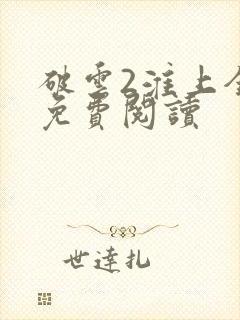 破雲2淮上全
免費閱讀
世達扎